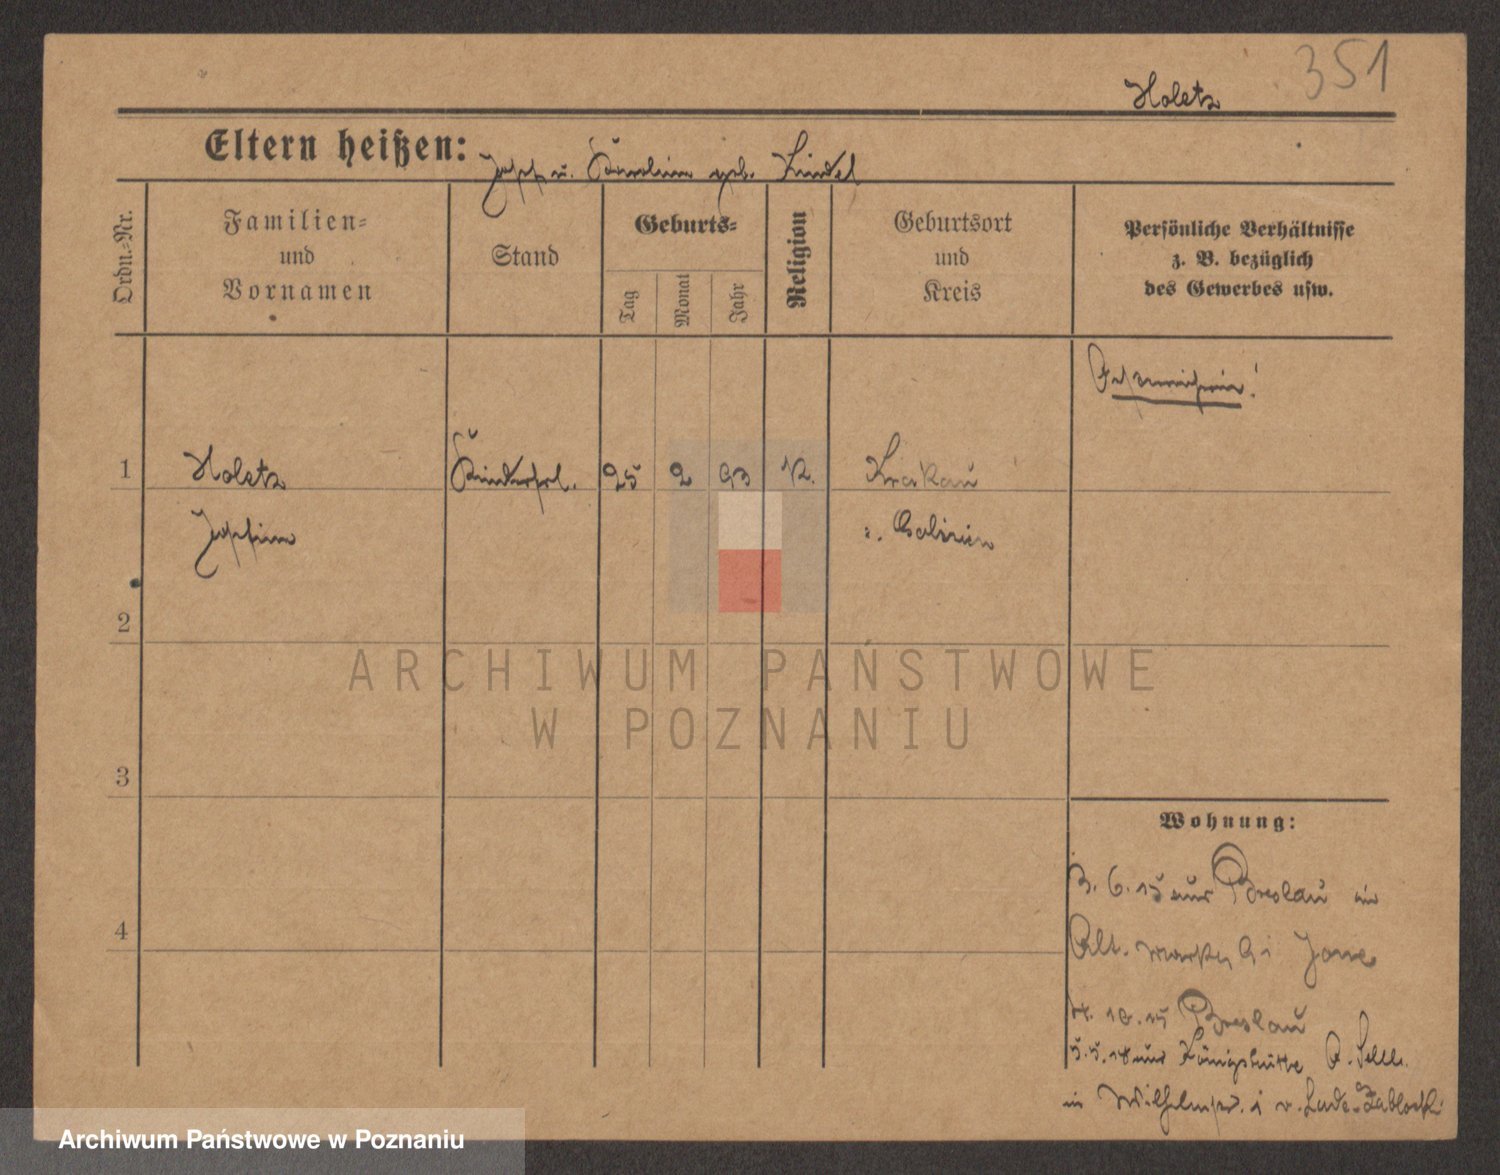 351
Holetz
Eltern heißen: Josef u. Karoline geb. Lindel
Ordn.-Nr.
Familien-
und
Vornamen
Stand
Geburts-
Tag
Monat
Jahr
Religion
Geburtsort
und
Kreis
Persönliche Verhältnisse
z. B. bezüglich
des Gewerbes usw.
1
Holetz
Kinderfrl.
25
2
93
K.
Krakau
Josefine
i. Galizien
2
ARCHIWUM PAŃSTWOWE
W POZNANIU
3
Wohnung:
3. 6. 15 aus Breslau in
4
Alt. Markt
10. 15 Breslau
5. 5. 18 aus Königshütte
in Wilhelmstr.
Archiwum Państwowe w Poznaniu